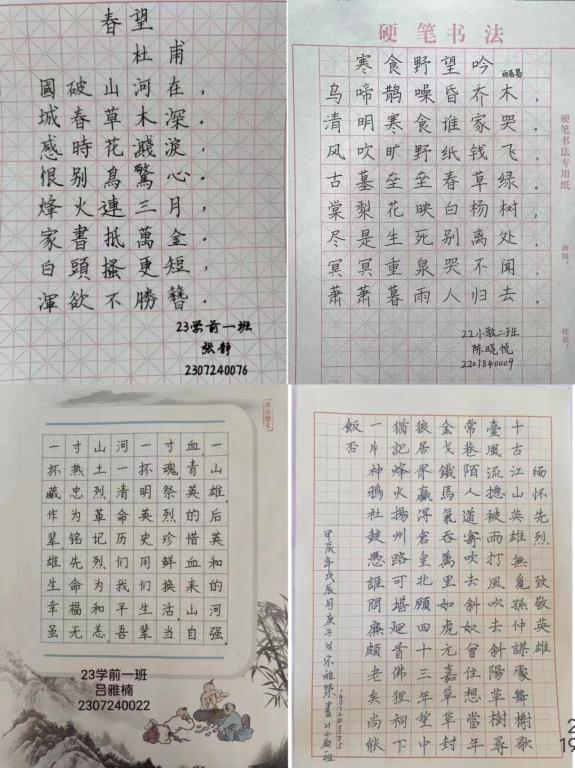 春望
杜甫
國破山河在，
城春草木深．
感時花濺淚，
恨别鳥驚心．
烽火連三月，
家書抵萬金．
白頭搔更短，
渾欲不勝簪．
23学前一班
张静
2307240076
硬笔书法
寒食野望吟 白居易
乌啼鹊噪昏乔木，
清明寒食谁家哭．
风吹旷野纸钱飞，
古墓垒垒春草绿．
棠梨花映白杨树，
尽是生死别离处．
冥冥重泉哭不闻，
萧萧暮雨人归去．
硬笔书法专用纸
班级：
姓名：
22小教二班
陈晓悦
2207840009
一寸山河一寸血，一
抔热土一抔魂，青山
藏忠烈清明祭英雄
作为革命英烈的后
辈，铭记历史珍惜英
雄先烈们用鲜血和
生命为我们换来的
幸福和平生活．山河
虽无恙，吾辈当自强．
23学前一班
吕雅楠
2307240022
缅怀先烈 致敬英雄
千古江山英雄無覓孫仲謀處舞榭歌
臺風流揔被雨打風吹去斜陽草樹尋
常巷陌人道寄奴曾住想當年
金戈鐵馬氣吞萬里如虎元嘉草草封
狼居胥贏得倉皇北顧四十三年望中
猶記烽火揚州路可堪迴首佛狸祠下
一片神鴉社鼓憑誰問廉頗老矣尚能
飯否
甲辰年戊辰月庚子日宋雅 書21小教一班
2
19